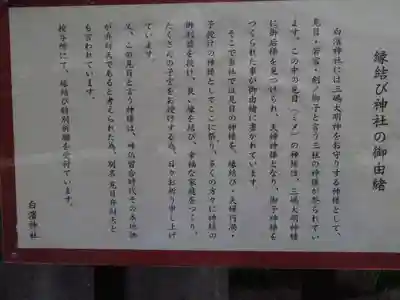 縁結び神社の御由緒
白濱神社には三嶋大明神をお守りする神様として、
見目・若宮・剣ノ御子と言う三柱の神様が祭られてい
ます。この中の見目（ミメ）の神様は、三嶋大明神様
に御后様を見つけられ、夫婦神様となり、御子神様も
つくられた事が御由緒に書かれています。
そこで当社では見目の神様を、縁結び・夫婦円満・
子授けの神様としてここに祭り、多くの方々に神様の
御利益を授け、良い縁を結び、幸福な家庭をつくり、
たくさんの子宝をお授けする為、日々お祈り申し上げ
ています。
又、この見目と言う神様は、神仏習合時代その本地佛
が弁財天であると考えられた為、別名見目弁財天と
も言われています。
授与所にて、縁結び特別祈願を受付ています。
白濱神社